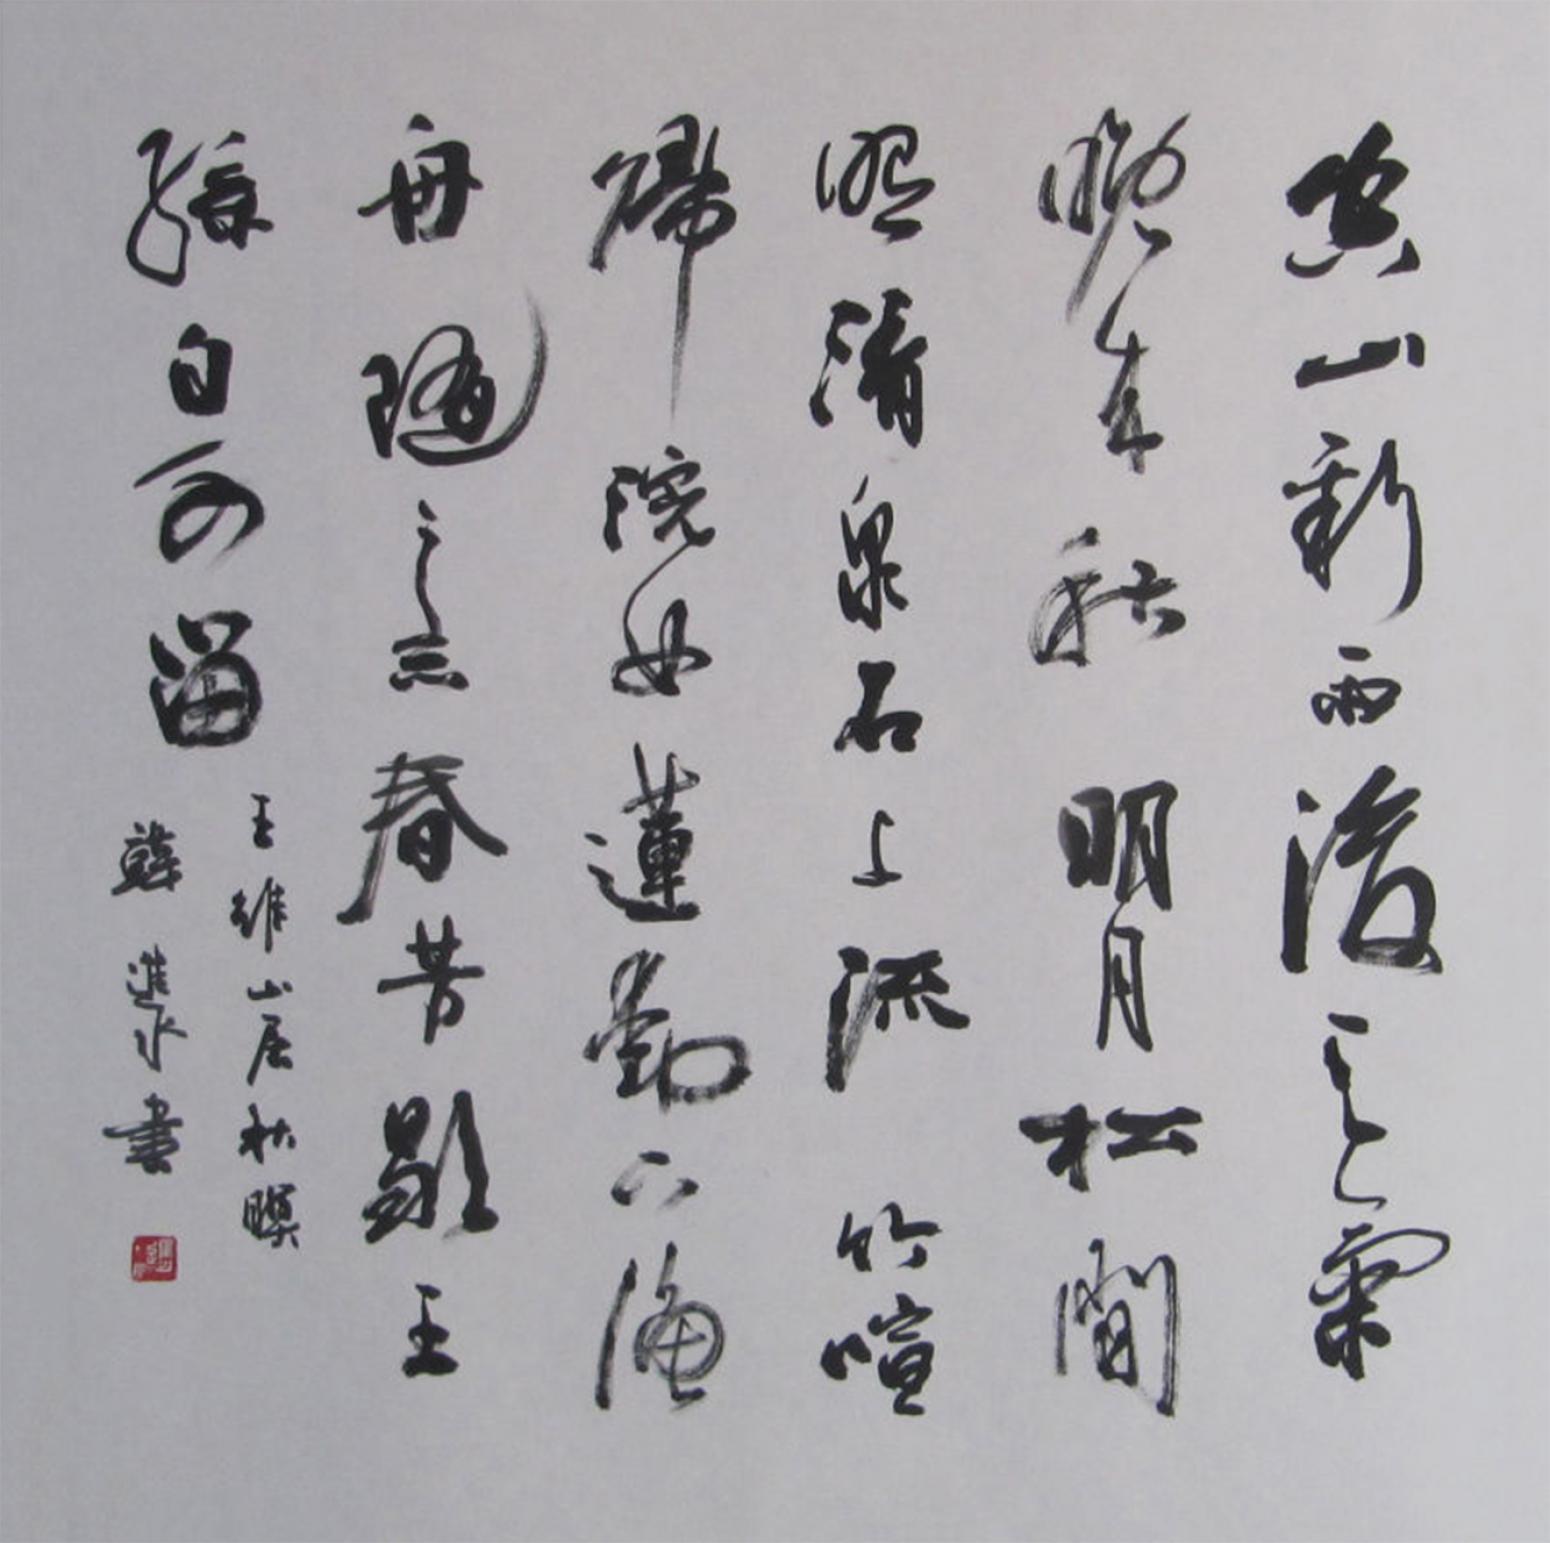 空山新雨後天氣
晚來秋明月松間
照清泉石上流竹喧
歸浣女蓮動下漁
舟隨意春芳歇王
孫自可留
王維山居秋暝
韓進水書